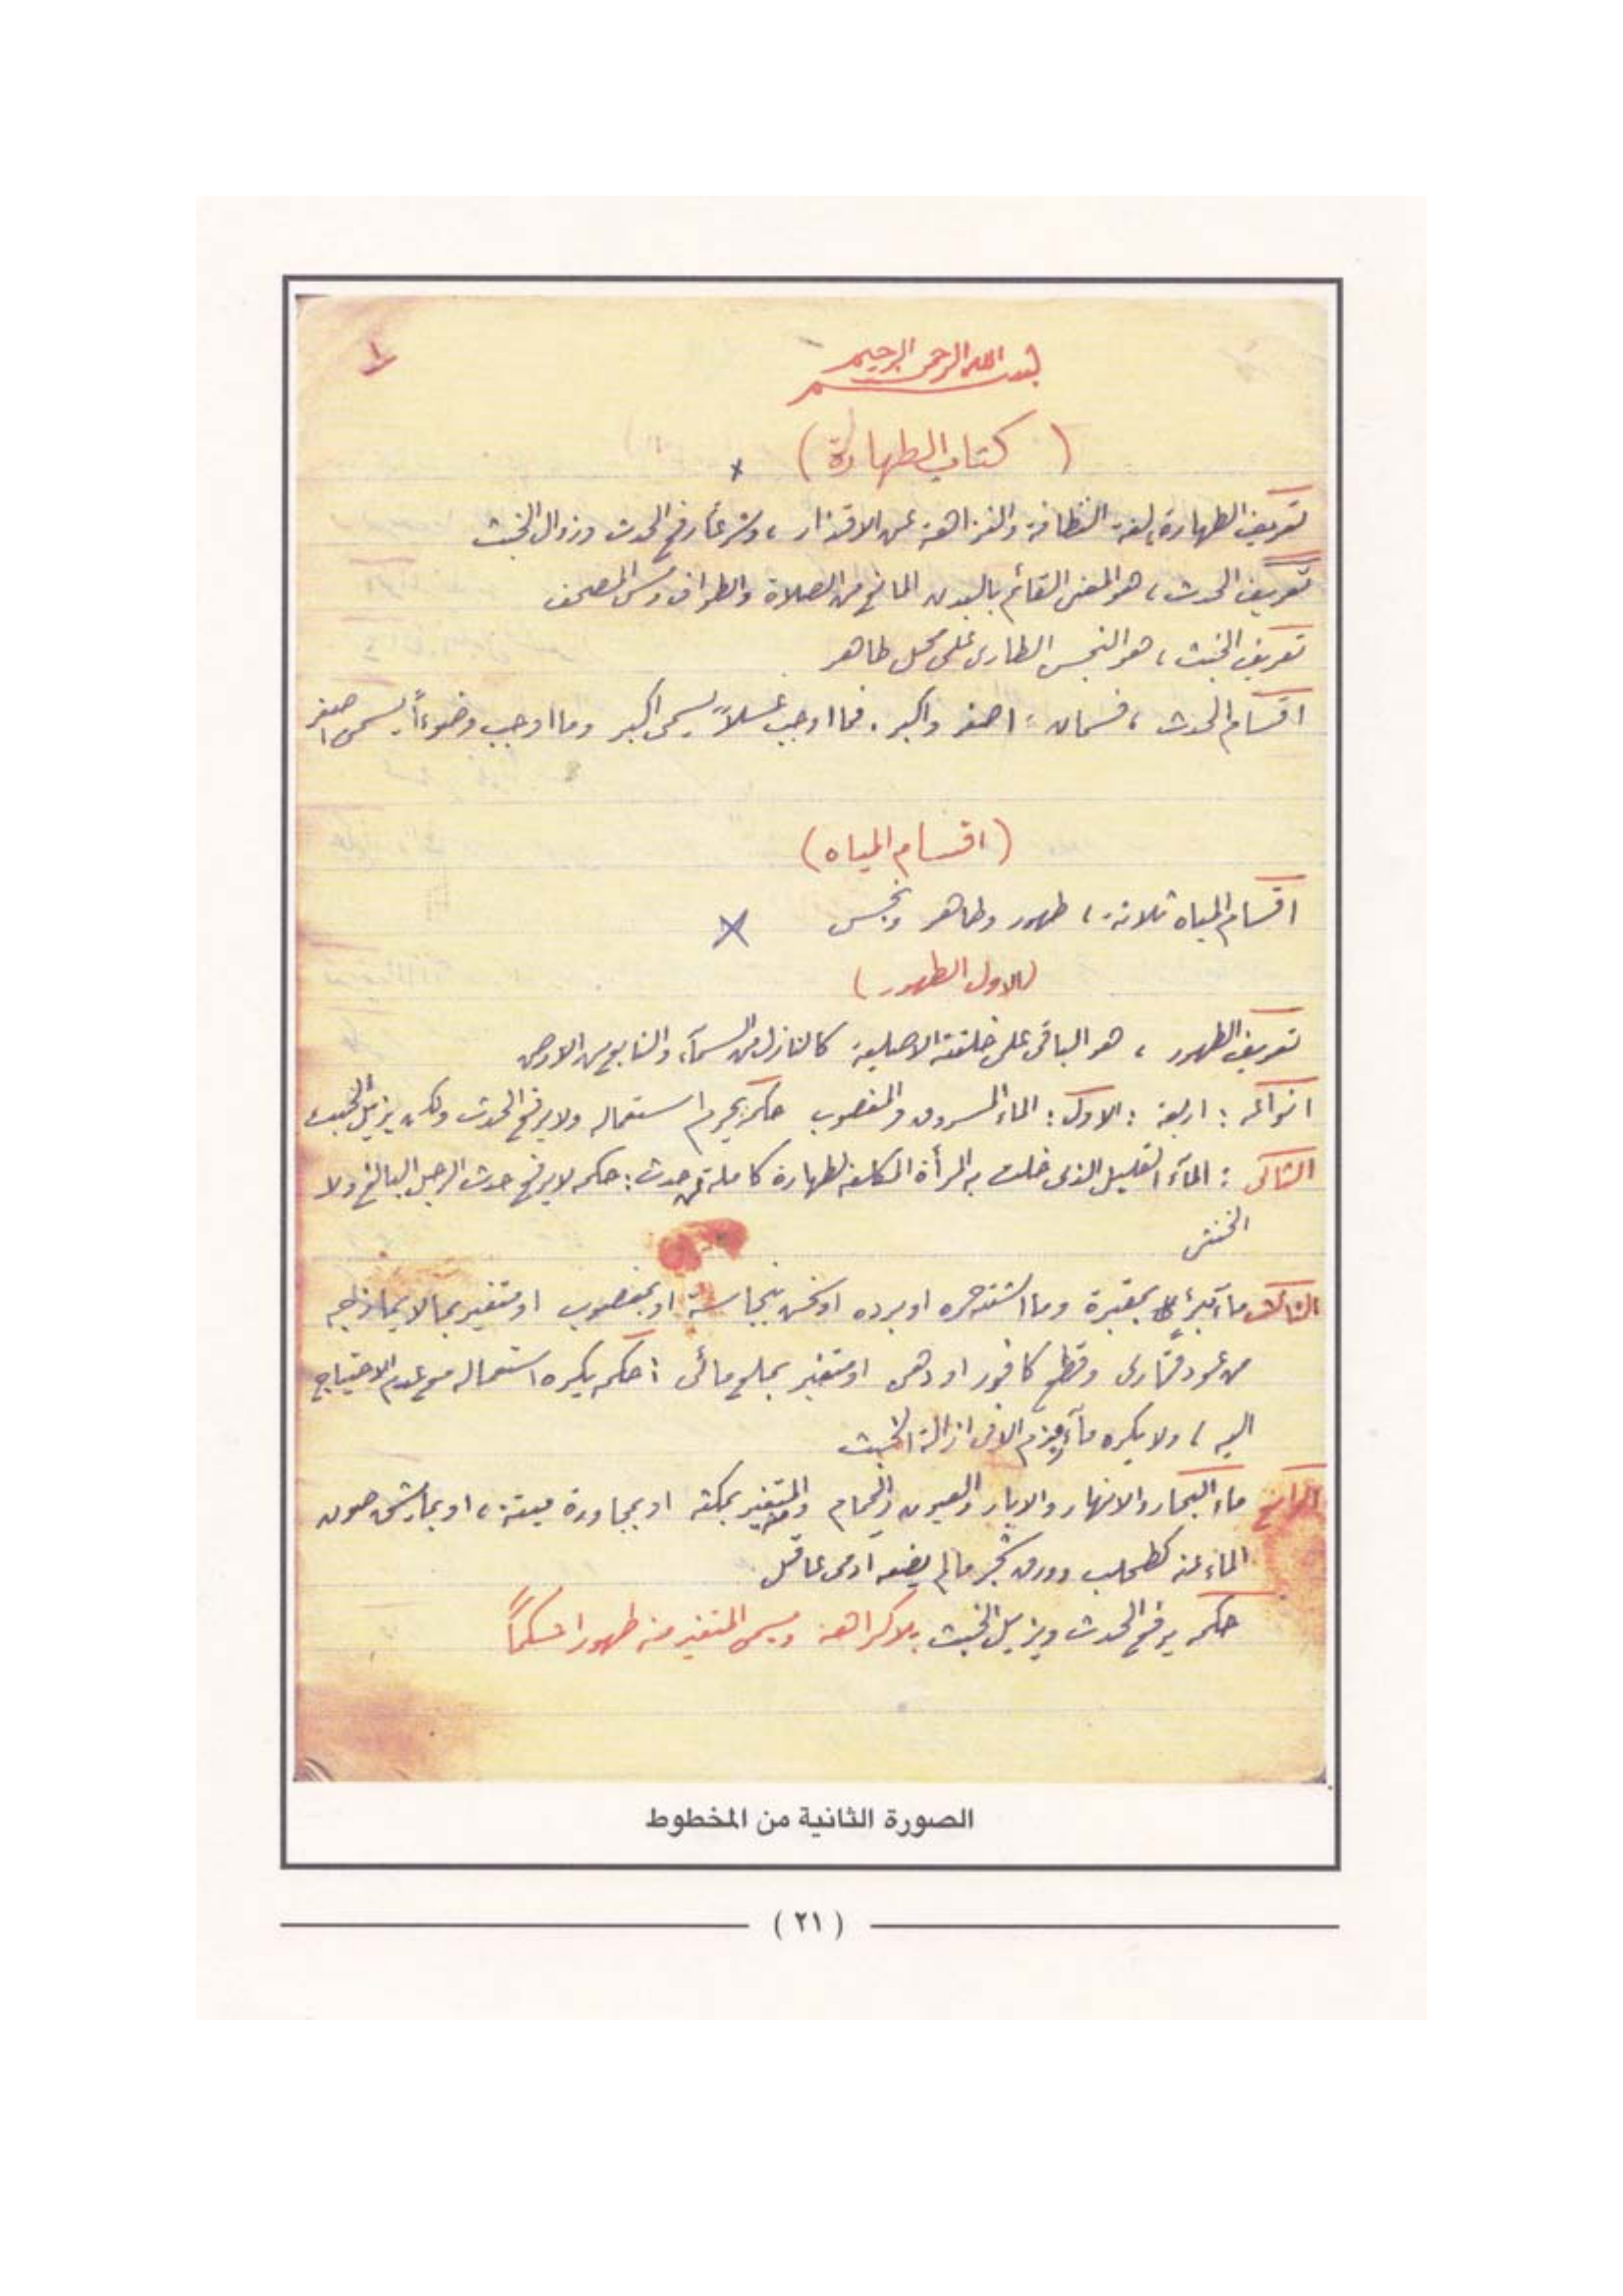 ١
بسم الله الرحمن الرحيم
( كتاب الطهارة )
تعريف الطهارة، لغة النظافة والنزاهة عن الاقذار، وشرعاً رفع الحدث وزوال الخبث
تعريف الحدث، هو المعنى القائم بالبدن المانع من الصلاة والطواف ومس المصحف
تعريف الخبث، هو النجس الطارى على محل طاهر
اقسام الحدث، قسمان: اصغر واكبر. فما اوجب غسلاً يسمى اكبر وما اوجب وضوءاً يسمى اصغر
(اقسام المياه)
اقسام المياه ثلاثة، طهور وطاهر ونجس
(الاول الطهور)
تعريف الطهور، هو الباقى على خلقته الاصلية كالنازل من السمآء والنابع من الارض
انواعه: اربعة: الاول: الماء المسروق والمغصوب حكمه يحرم استعماله ولا يرفع الحدث ولكن يزيل الخبث
الثانى: المآء القليل الذى خلت به المرأة المكلفة لطهارة كاملة عن حدث: حكمه لا يرفع حدث الرجل البالغ ولا
الخنثى
الثالث مآء بئر بمقبرة وما اشتد حره او برده او سخن بنجاسة او بمغصوب او متغير بما لا يمازجه
من عود قمارى وقطع كافور او دهن او متغير بملح مائى: حكمه يكره استعماله مع عدم الاحتياج
اليه، ولا يكره مآء زمزم الا فى ازالة الخبث
الرابع ماء البحار والانهار والابار والعيون والحمام والمتغير بمكثه او بمجاورة ميتة، او بما يشق صون
الماء عنه كطحلب وورق شجر ما لم يضعه آدمى عاقل
حكمه يرفع الحدث ويزيل الخبث بلا كراهة ويسمى المتغير منه طهورا حكماً
الصورة الثانية من المخطوط
( ٢١ )